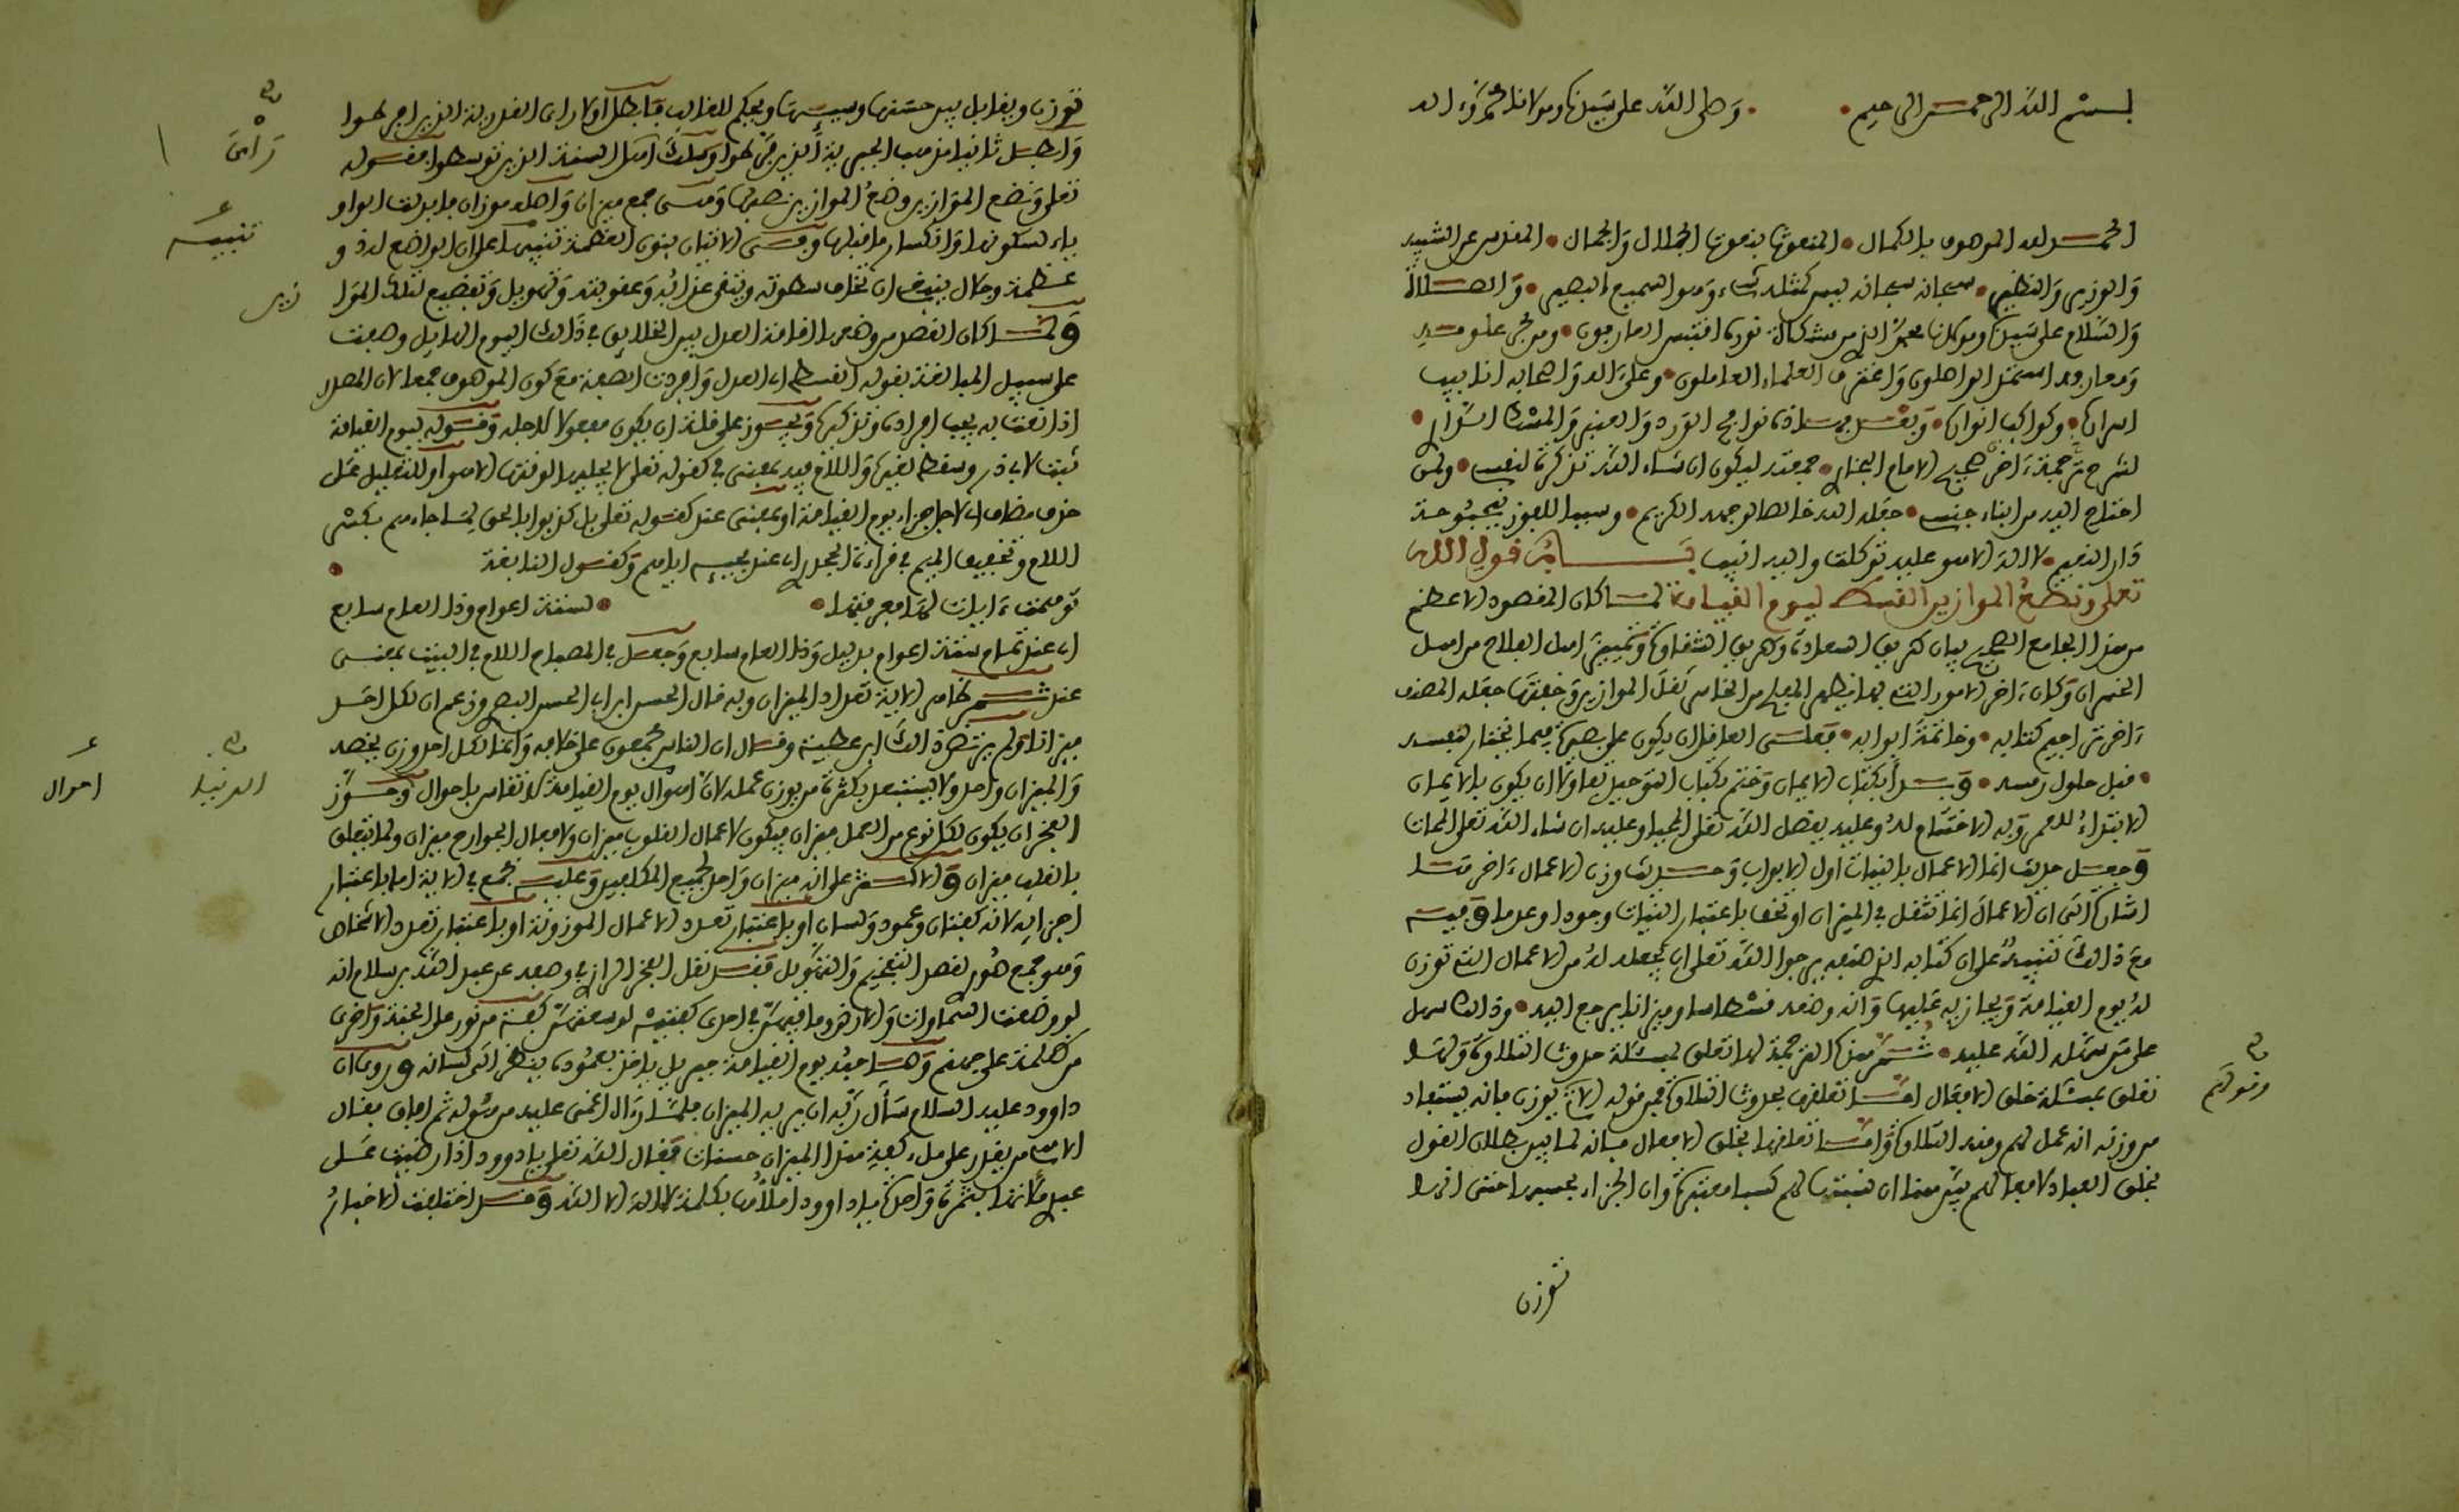 بسم الله الرحمن الرحيم • وصلى الله على سيدنا ومولانا محمد وءاله
الحمد لله الموصوف بالكمال • المنعوت بنعوت الجلال والجمال • المقدس عن الشبيه
والوزير والنظير • سبحانه سبحانه ليس كمثله شيء وهو السميع البصير • والصلاة
والسلام على سيدنا ومولانا محمد الذي من مشكاة نوره اقتبس العارفون • ومن بحر علومه
ومعارفه استمد الواصلون واغترف العلماء العاملون • وعلى ءاله واصحابه انابيب
اسراره • وكواكب انواره • وبعد فهذه نوافح الورد والعنبر والمسك الداري •
لشرح ترجمة ءاخر صحيح الامام البخاري • جمعته ليكون ان شاء الله تذكرة لنفسي • ولمن
احتاج اليه من ابناء جنسي • جعله الله خالصا لوجهه الكريم • وسببا للفوز ببحبوحة
دار النعيم • لا اله الا هو عليه توكلت واليه انيب باب قول الله
تعلى ونضع الموازين القسط ليوم القيامة لما كان المقصود الاعظم
من هذا الجامع الصحيح بيان طريق السعادة وطريق الشقاوة وتمييز اهل الفلاح من اهل
الخسران وكان ءاخر الامور التي بها يظهر المفلح من الخاسر ثقل الموازين وخفتها جعله المصنف
ءاخر تراجم كتابه • وخاتمة ابوابه • فعلى العاقل ان يكون على بصيرة فيما يختار لنفسه
• قبل حلول رمسه • وبدأ بكتاب الايمان وختم بكتاب التوحيد تفاؤلا ان يكون بالايمان
الابتداء للعمر وبه الاختتام له وعليه بفضل الله تعلى المحيا وعليه ان شاء الله تعلى الممات
وجعل حديث انما الاعمال بالنيات اول الابواب وحديث وزن الاعمال ءاخرها
اشارة الى ان الاعمال انما تثقل في الميزان او تخف باعتبار النيات وجودا وعدما وفيه
مع ذالك تنبيه على ان كتابه الذي صنفه يرجو الله تعلى ان يجعله له من الاعمال التي توزن
له يوم القيامة ويجازيه عليها وانه وضعه قسطاسا وميزانا يرجع اليه • وذالك سهل
على من سهله الله عليه • ثم هذه الترجمة لها تعلق بمسئلة حدوث التلاوة ولها
تعلق بمسئلة خلق الافعال اما تعلقها بحدوث التلاوة فمن قوله الآتي يوزن فانه يستفاد
من وزنه انه عمل لهم ومنه التلاوة واما تعلقها بخلق الافعال فانه لما بين بطلان القول
بخلق العباد لافعالهم بين هنا ان نسبتها لهم كسبا معتبرة وان الجزاء بحسبها حتى انها
توزن
وقولهم
توزن ويقابل بين حسنها وسيئها ويحكم للغالب فابطل اولا راي القدرية الذين افرطوا
وابطل ثانيا مذهب الجبرية الذين فرطوا وسلك مسلك اهل السنة الذين توسطوا فقوله
تعلى ونضع الموازين وضع الموازين نصبها وهي جمع ميزان واصله موزان فابدلت الواو
ياء لسكونها وانكسار ما قبلها وفي الاتيان بنون العظمة تنبيه على ان الواضع له ذو
عظمة وجلال ينبغي ان تخاف سطوته ويتقى عذابه وعقوبته وتهويل وتفظيع لتلك الموازين
ولما كان القصد من وضعها اقامة العدل بين الخلائق في ذالك اليوم الهائل وصفت
على سبيل المبالغة بقوله القسط اي العدل وافردت الصفة مع كون الموصوف جمعا لان المصدر
اذا نعت به يجب افراده وتذكيره ويجوز على قلة ان يكون مفعولا لاجله وقوله ليوم القيامة
ثبت لابي ذر وسقط لغيره واللام فيه بمعنى في كقوله تعلى لا يجليها لوقتها الا هو او للتعليل على
حذف مضاف اي لاجل جزاء يوم القيامة او بمعنى عند كقوله تعلى بل كذبوا بالحق لما جاءهم بكسر
اللام وتخفيف الميم في قراءة الجحدري اي عند مجيئه اياهم وكقول النابغة •
توهمت ءايات لها فعرفتها • • لستة اعوام وذا العام سابع
اي عند تمام ستة اعوام بدليل وذا العام سابع وجعل في المصباح اللام في البيت بمعنى
عند ثم ظاهر الاية تعدد الميزان وبه قال الحسن ابن ابي الحسن البصري وزعم ان لكل احد
ميزانا ولم يرتض ذالك ابن عطية وقال ان الناس مجمعون على خلافه وانما لكل احد وزن يخصه
والميزان واحد ولا يستبعد بكثرة من يوزن عمله لان احوال يوم القيامة لا تقاس باحوال الدنيا وجوز
الفخر ان يكون لكل نوع من العمل ميزان فيكون لاعمال القلوب ميزان ولافعال الجوارح ميزان ولما يتعلق
بالقلب ميزان والاكثر على انه ميزان واحد لجميع المكلفين وعليه جمع في الاية اما باعتبار
اجزائه لانه كفتان وعمود ولسان او باعتبار تعدد الاعمال الموزونة او باعتبار تعدد الاشخاص
وهو جمع صوري لقصد التفخيم والتهويل فقد نقل الفخر الرازي وصفه عن عبد الله بن سلام انه
لو وضعت السماوات والارض وما فيهن في احدى كفتيه لوسعتهن كفة من نور على الجنة واخرى
من ظلمة على جهنم وصاحبه يوم القيامة جبريل ياخذ بعموده ينظر الى لسانه وروي ان
داوود عليه السلام سأل ربه ان يريه الميزان فلما رءاه اغمي عليه من هوله ثم افاق فقال
الاهي من يقدر على ملء كفة هذا الميزان حسنات فقال الله تعلى يا داوود اذا رضيت على
عبدي ملأتها بتمرة واحدة يا داوود املأها بكلمة لا اله الا الله وقد اختلفت الاخبار
تنبيه
احوال
الدنيا